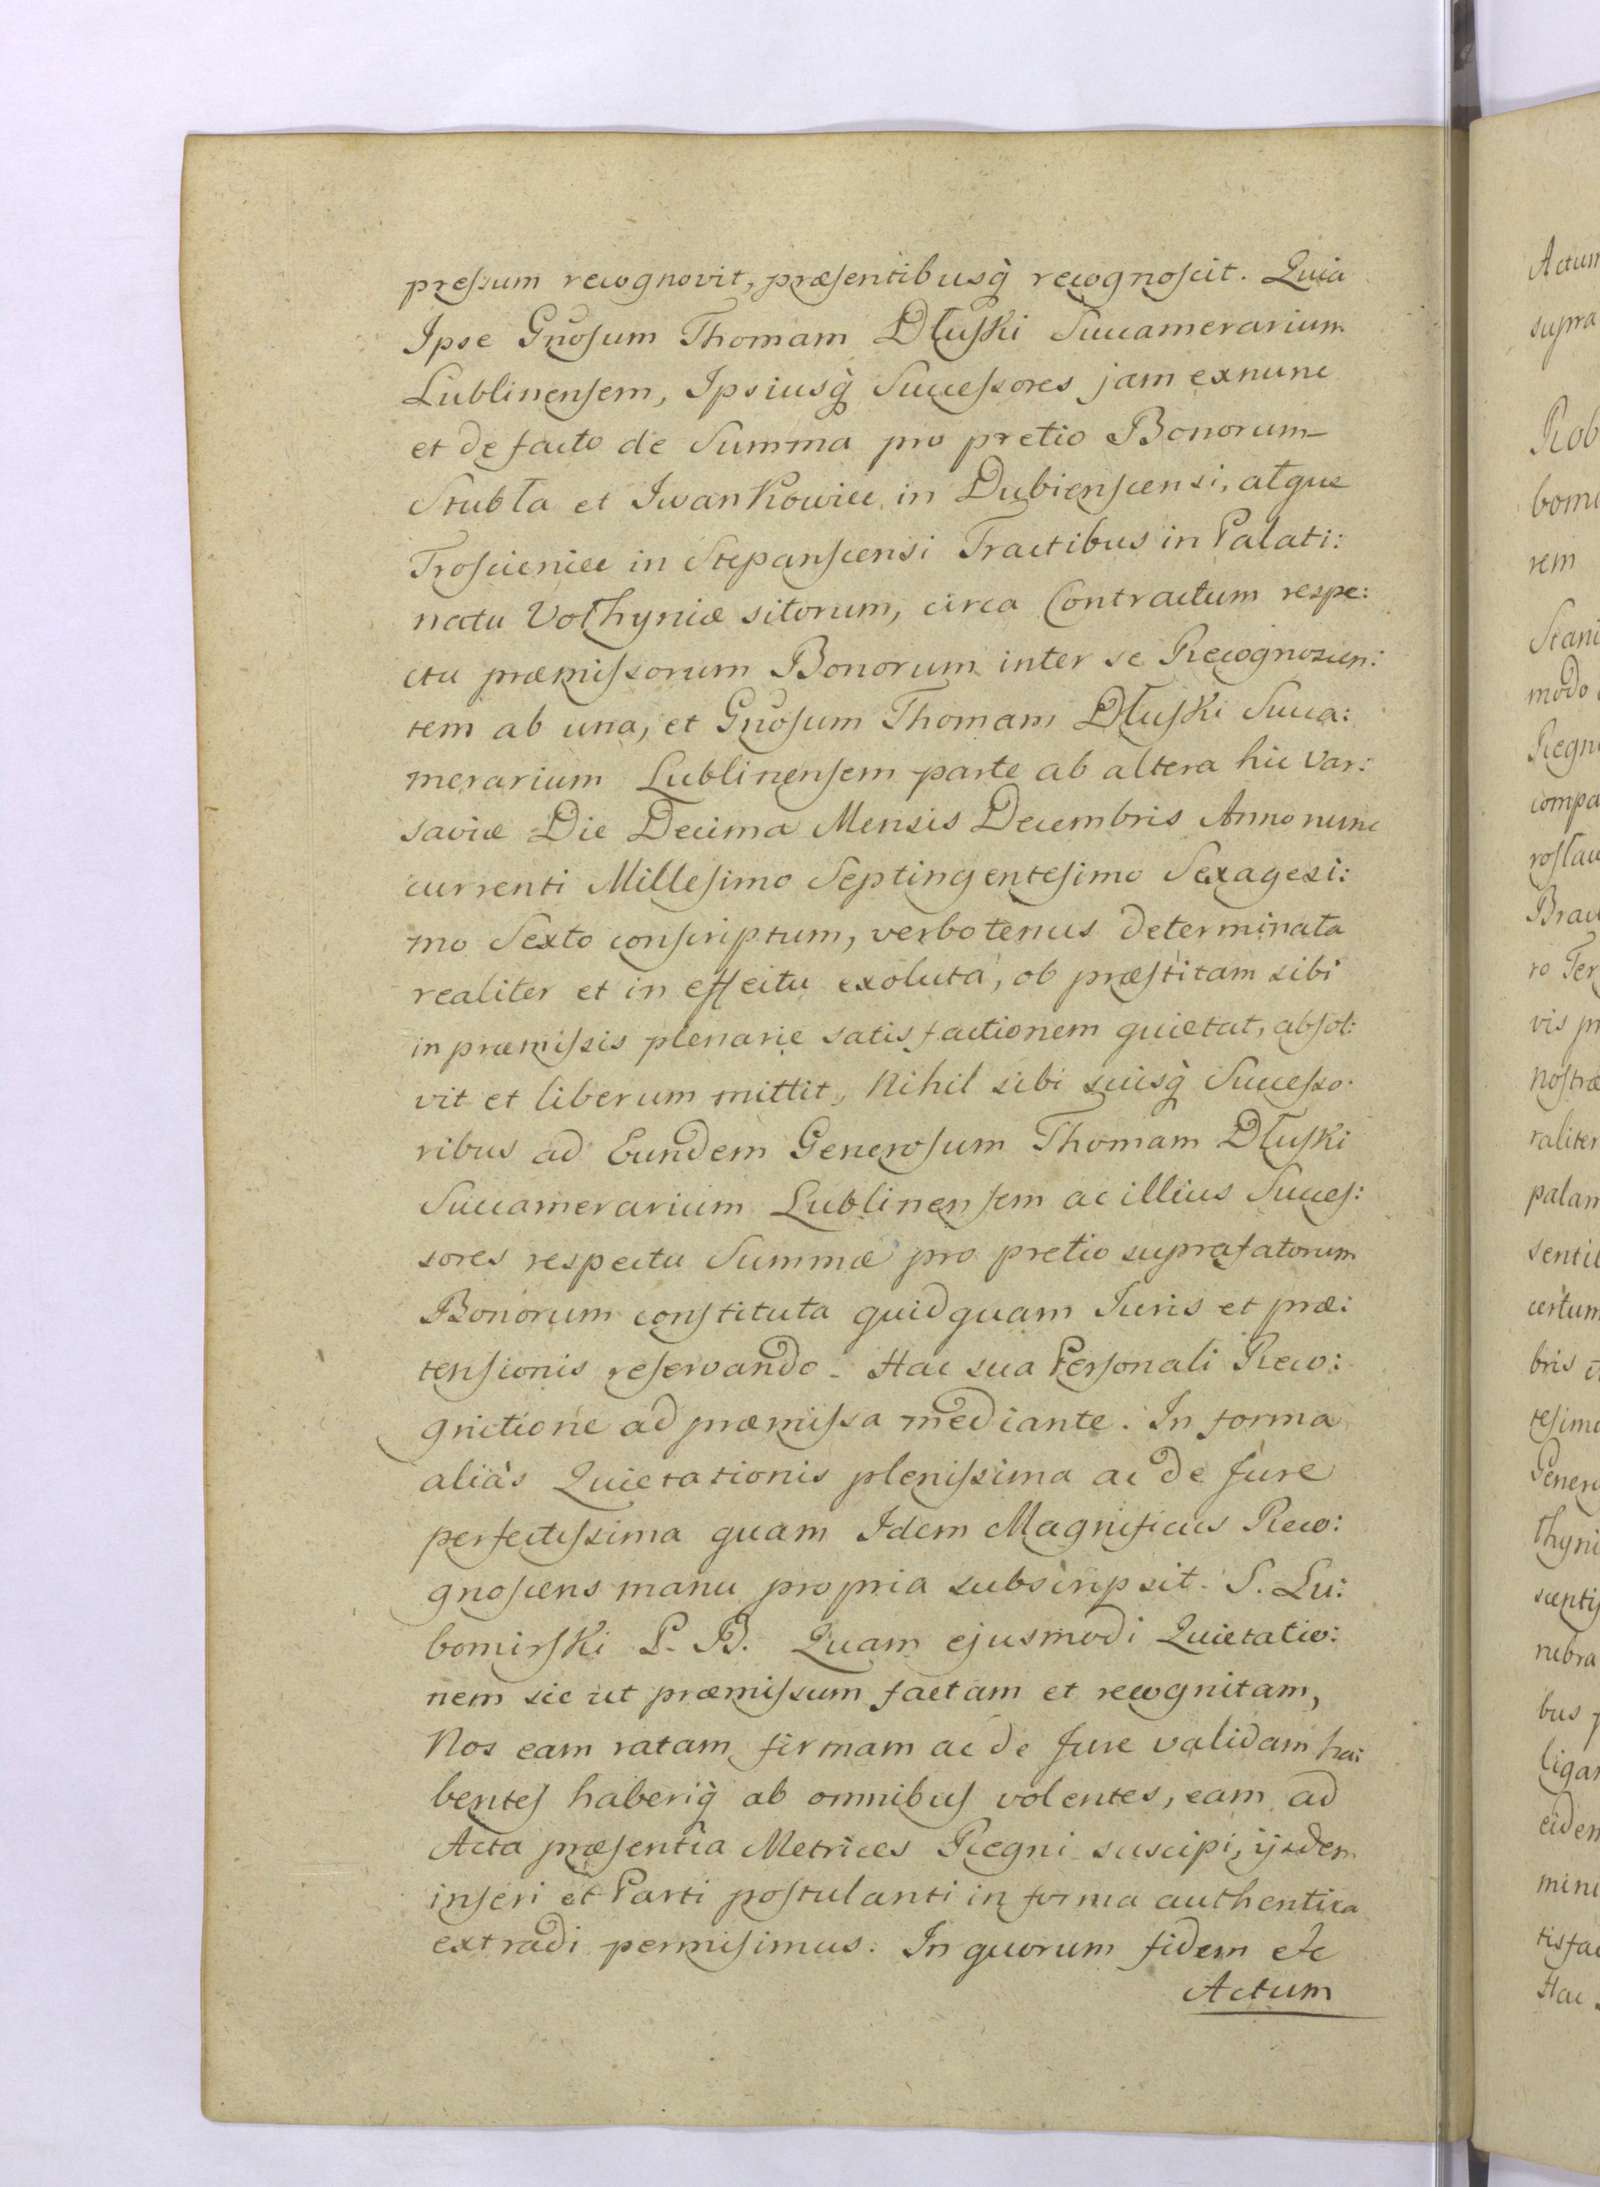 pressum recognovit, præsentibusq̀ recognoscit. Quia
Ipse Gnosum Thomam Dłuski Succamerarium
Lublinensem, Ipsiusq̀ Successores jam exnunc
et de facto de Summa pro pretio Bonorum
Stubła et Iwankowice in Dubienscensi, atque
Troscieniec in Stepanscensi Tractibus in Palati:
natu Volhyniæ sitorum, circa Contractum respe:
ctu præmissorum Bonorum inter se Recognoscen:
tem ab una, et Gnosum Thomam Dłuski Succa:
merarium Lublinensem parte ab altera hic Var:
saviæ Die Decima Mensis Decembris Anno nunc
currenti Millesimo Septingentesimo Sexagesi:
mo Sexto conscriptum, verbotenus determinata
realiter et in effectu exoluta, ob præstitam sibi
in præmissis plenarie satisfactionem quietat, absol:
vit et liberum mittit, Nihil sibi suisq̀ Successo:
ribus ad Eundem Generosum Thomam Dłuski
Succamerarium Lublinensem ac illius Succes:
sores respectu Summæ pro pretio suprafatorum
Bonorum constituta quidquam Iuris et præ:
tensionis reservando. Hac sua Personali Reco:
gnitione ad præmissa mediante. In forma
aliàs Quietationis plenissima ac de Jure
perfectissima quam Idem Magnificus Reco:
gnoscens manu propria subscripsit. S. Lu:
bomirski P. B. Quam ejusmodi Quietatio:
nem sic ut præmissum factam et recognitam,
Nos eam ratam firmam ac de Jure validam ha:
bentes haberiq̀ ab omnibus volentes, eam ad
Acta præsentia Metrices Regni suscipi, ijsdem
inseri et Parti postulanti in forma authentica
extradi permisimus. In quorum fidem etc
Actum
Actum
supra
Rob
bomi
rem
Stani
modo
Regn
compa
rosław
Brac
ro Ter
vis pr
Nostræ
raliter
palam
sentib
certum
bris
tesimo
Genero
thyni
scentis
rubra
bus
ligan
eidem
mini
tisfac
Hac